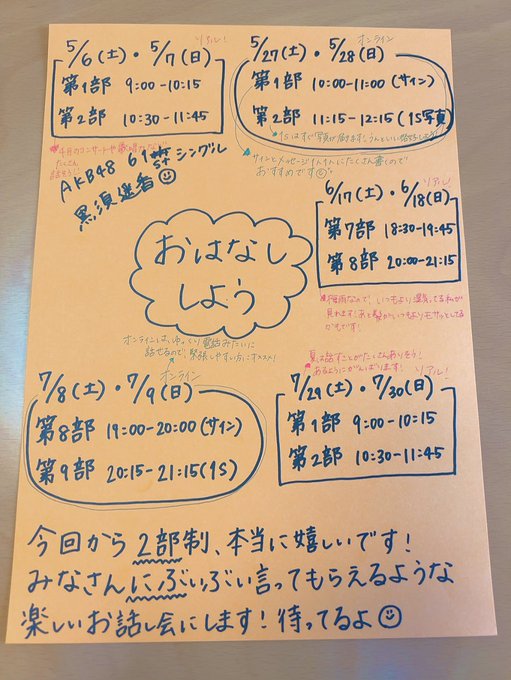 リアル!
5/6(土)・5/7(日)
第1部 9:00-10:15
第2部 10:30-11:45
4月のコンサートや歌唱
たくさん
話そう!
AKB48 61st シングル
黒須遥香
オンライン
5/27(土)・5/28(日)
第1部 10:00-11:00(サイン)
第2部 11:15-12:15(1S写真)
1Sはすぐ写真が届きます!うんといい
サインとメッセージ1人1人にたくさん書くので
おすすめです
リアル!
6/17(土)・6/18(日)
第7部 18:30-19:45
第8部 20:00-21:15
梅雨なので、いつもより湿気ってる私が
見れます!あと髪がいつもよりモサッとしてる
かもです!
おはなし
しよう
オンラインは、ゆっくり電話みたいに
話せるので、緊張しやすい方にオススメ!
オンライン
7/8(土)・7/9(日)
第8部 19:00-20:00(サイン)
第9部 20:15-21:15(1S)
夏は話すことがたくさんありそう!
あるようにがんばります!
リアル!
7/29(土)・7/30(日)
第1部 9:00-10:15
第2部 10:30-11:45
今回から2部制、本当に嬉しいです!
みなさんにぶいぶい言ってもらえるような
楽しいお話し会にします!待ってるよ